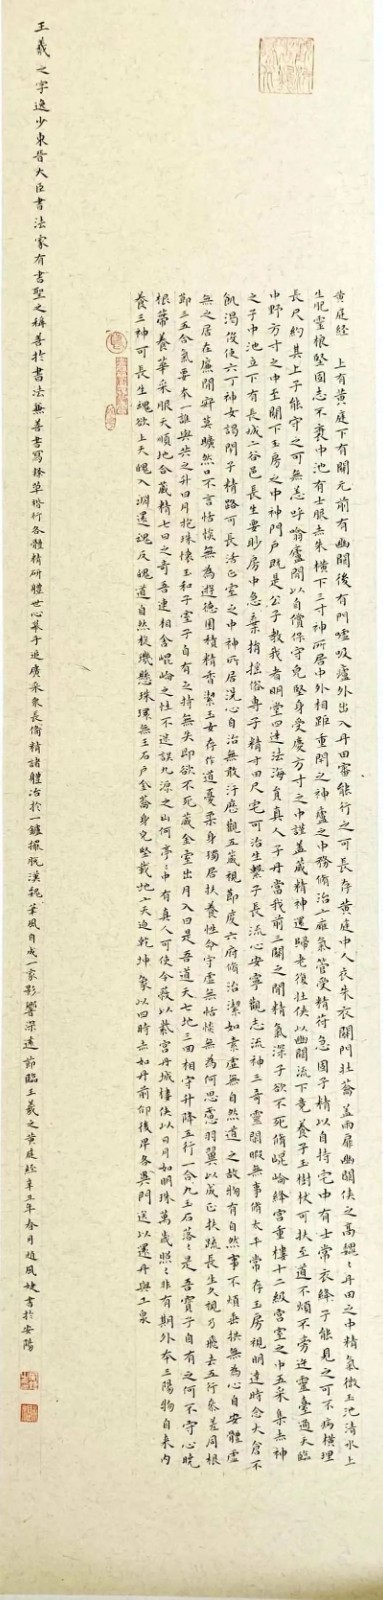 黄庭經　上有黄庭下有關元前有幽闕後有門噓吸廬外出入丹田審能行之可長存黄庭中人衣朱衣關門壯蘥蓋兩扉幽闕俠之高魏丹田之中精氣微玉池清水上
生肥靈根堅固志不衰中池有士服赤朱橫下三寸神所居中外相距重閉之神廬之中務脩治玄廱氣管受精符急固子精以自持宅中有士常衣絳子能見之可不病橫理
長尺約其上子能守之可無恙呼噏廬間以自償保守完堅身受慶方寸之中謹蓋藏精神還歸老復壯俠以幽闕流下竟養子玉樹杖可扶至道不煩不旁迕靈臺通天臨
中野方寸之中至關下玉房之中神門戶既是公子教我者明堂四達法海員真人子丹當我前三關之間精氣深子欲不死脩崐崘絳宮重樓十二級宮室之中五采集赤神
之子中池立下有長城玄谷邑長生要眇房中急棄捐搖俗專子精寸田尺宅可治生繫子長流心安寧觀志流神三奇靈閑暇無事脩太平常存玉房視明達時念大倉不
飢渴役使六丁神女謁閉子精路可長活正室之中神所居洗心自治無敢汙歷觀五藏視節度六府脩治潔如素虛無自然道之故物有自然事不煩垂拱無為心自安體虛
無之居在廉間寂莫曠然口不言恬惔無為遊德園積精香潔玉女存作道憂柔身獨居扶養性命守虛無恬惔無為何思慮羽翼以成正扶疏長生久視乃飛去五行參差同根
節三五合氣要本一誰與共之升日月抱珠懷玉和子室子自有之持無失即欲不死藏金室出月入日是吾道天七地三回相守升降五行一合九玉石落落是吾寶子自有之何不守心曉
根蔕養華采服天順地合藏精七日之奇吾連相舍崐崘之性不迷誤九源之山何亭亭中有真人可使令蔽以紫宮丹城樓俠以日月如明珠萬歲照照非有期外本三陽物自来内
養三神可長生魂欲上天魄入淵還魂反魄道自然旋璣懸珠環無端玉石戶金籥身完堅載地玄天迫乾坤象以四時赤如丹前仰後卑各異門送以還丹與玄泉
王羲之字逸少東晉大臣書法家有書聖之稱善於書法兼善書寫隸草楷行各體精研體勢心摹手追廣采衆長備精諸體冶於一爐擺脱漢魏筆風自成一家影響深遠節臨王羲之黄庭經辛丑年春月趙風婕書於安陽